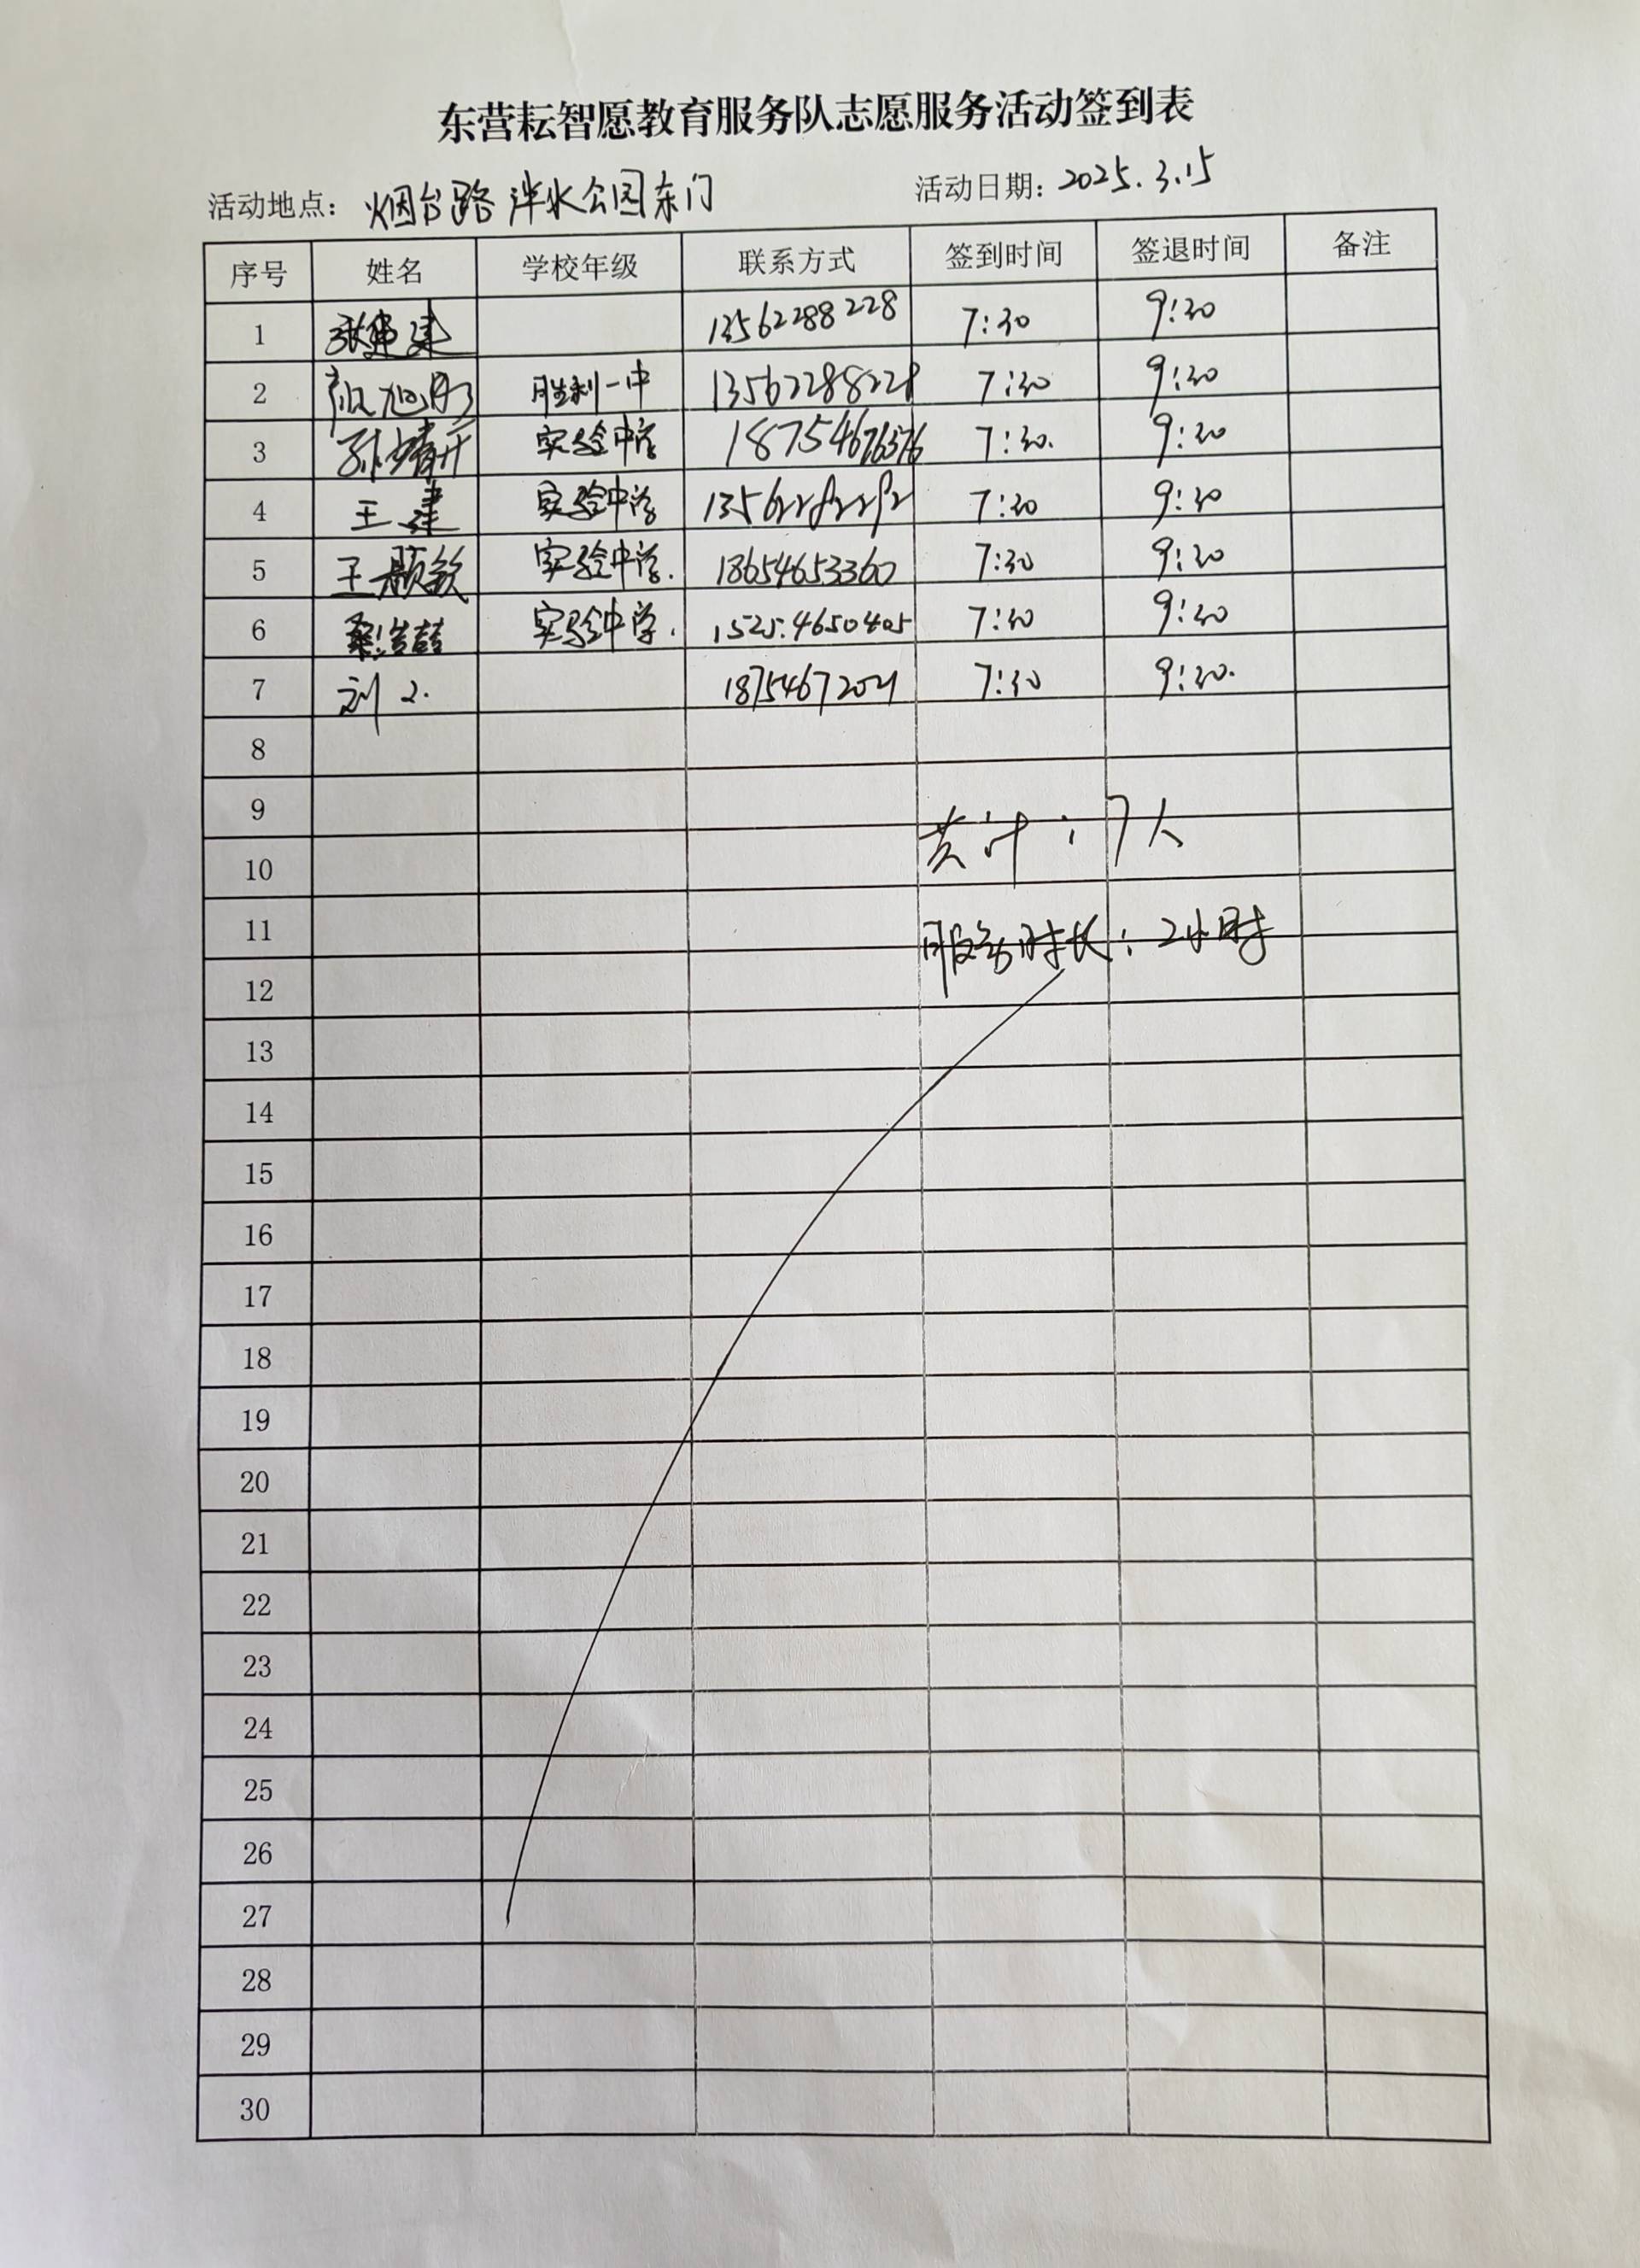 东营耘智愿教育服务队志愿服务活动签到表
活动地点: 烟台路 泮水公园东门 活动日期: 2025.3.15
序号 姓名 学校年级 联系方式 签到时间 签退时间 备注
1 13562288228 7:30 9:30
2 胜利一中 13562288228 7:30 9:30
3 孙婧开 实验中学 18754676376 7:30. 9:30
4 王建 实验中学 7:30 9:30
5 王颢钦 实验中学. 18654653360 7:30 9:30
6 实验中学. 1525:4650405 7:30 9:30
7 刘 7:30 9:30.
8
9
共计:7人
10
11
服务时长:2小时
12
13
14
15
16
17
18
19
20
21
22
23
24
25
26
27
28
29
30